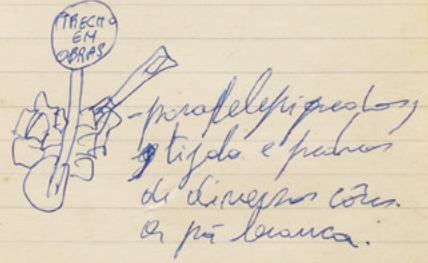 TRECHO
EM
OBRAS
-paralelepipedos,
tijolo e pedras
de diversas côres.
pá branca.